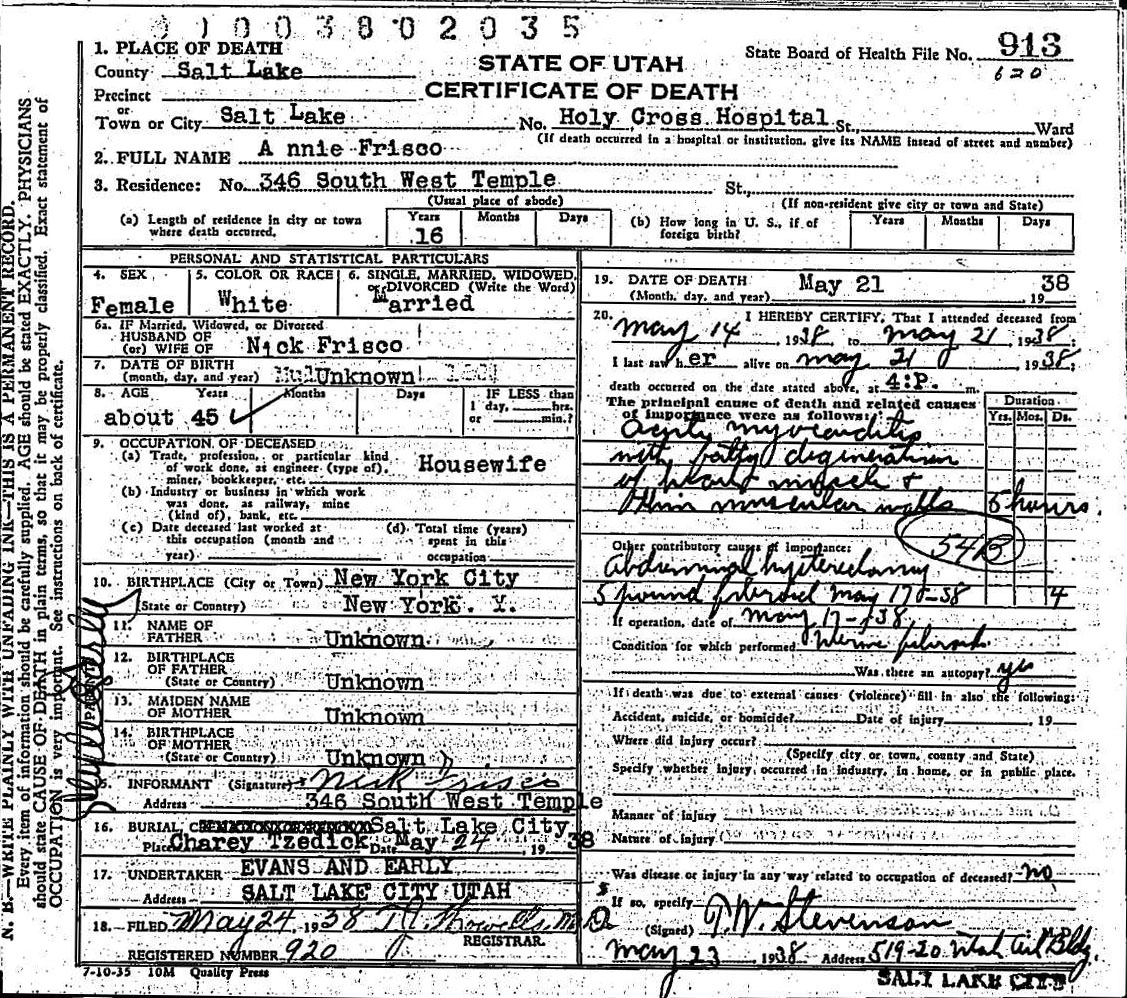 01003802035
1. PLACE OF DEATH
County Salt Lake
Precinct
or
Town or City Salt Lake
STATE OF UTAH
CERTIFICATE OF DEATH
State Board of Health File No. 913
620
No. Holy Cross Hospital St., Ward
(If death occurred in a hospital or institution, give its NAME insead of street and number)
2. FULL NAME A nnie Frisco
3. Residence: No. 346 South West Temple St.,
(Usual place of abode) (If non-resident give city or town and State)
(a) Length of residence in city or town where death occurred, Years 16 Months Days
(b) How long in U. S., if of foreign birth? Years Months Days
PERSONAL AND STATISTICAL PARTICULARS
4. SEX Female
5. COLOR OR RACE White
6. SINGLE, MARRIED, WIDOWED, or DIVORCED (Write the Word) Married
6a. IF Married, Widowed, or Divorced
HUSBAND OF
(or) WIFE OF Nick Frisco
7. DATE OF BIRTH
(month, day, and year) Unknown
8. AGE Years Months Days IF LESS than
1 day, hrs.
or min.?
about 45
9. OCCUPATION OF DECEASED
(a) Trade, profession, or particular kind of work done, as engineer (type of), miner, bookkeeper, etc. Housewife
(b) Industry or business in which work was done, as railway, mine (kind of), bank, etc.
(c) Date deceased last worked at this occupation (month and year)
(d) Total time (years) spent in this occupation
10. BIRTHPLACE (City or Town) New York City
(State or Country) New York. Y.
11. NAME OF FATHER Unknown
12. BIRTHPLACE OF FATHER
(State or Country) Unknown
13. MAIDEN NAME OF MOTHER Unknown
14. BIRTHPLACE OF MOTHER
(State or Country) Unknown
15. INFORMANT (Signature) Nick Frisco
Address 346 South West Temple
16. BURIAL, Salt Lake City
Place Charey Tzedick Date May 24, 1938
17. UNDERTAKER EVANS AND EARLY
Address SALT LAKE CITY UTAH
18. FILED May 24, 1938 T.J. Howells, M.D.
REGISTRAR.
REGISTERED NUMBER 920
7-10-35 10M Quality Press
19. DATE OF DEATH May 21 1938
(Month, day, and year)
20. I HEREBY CERTIFY, That I attended deceased from
May 14, 1938, to May 21, 1938;
I last saw her alive on May 21, 1938;
death occurred on the date stated above, at 4:P. m.
The principal cause of death and related causes of importance were as follows: Duration
Yrs. Mos. Ds.
Acute myocarditis
with fatty degeneration
of heart muscle &
thin muscular walls 5 hours.
54B
Other contributory causes of importance:
Abdominal hysterectomy
5 pound fibroid May 17-38 4
If operation, date of May 17-38
Condition for which performed Uterine fibroid
Was there an autopsy? yes
If death was due to external causes (violence) fill in also the following:
Accident, suicide, or homicide? Date of injury , 19
Where did injury occur?
(Specify city or town, county and State)
Specify whether injury occurred in industry, in home, or in public place.
Manner of injury
Nature of injury
Was disease or injury in any way related to occupation of deceased? no
If so, specify
(Signed) T. W. Stevenson
May 23 1938 Address 519-20 Utah Oil Bldg.
SALT LAKE CITY
N. B.—WRITE PLAINLY WITH UNFADING INK—THIS IS A PERMANENT RECORD.
Every item of information should be carefully supplied. AGE should be stated EXACTLY. PHYSICIANS
should state CAUSE OF DEATH in plain terms, so that it may be properly classified. Exact statement of
OCCUPATION is very important. See instructions on back of certificate.